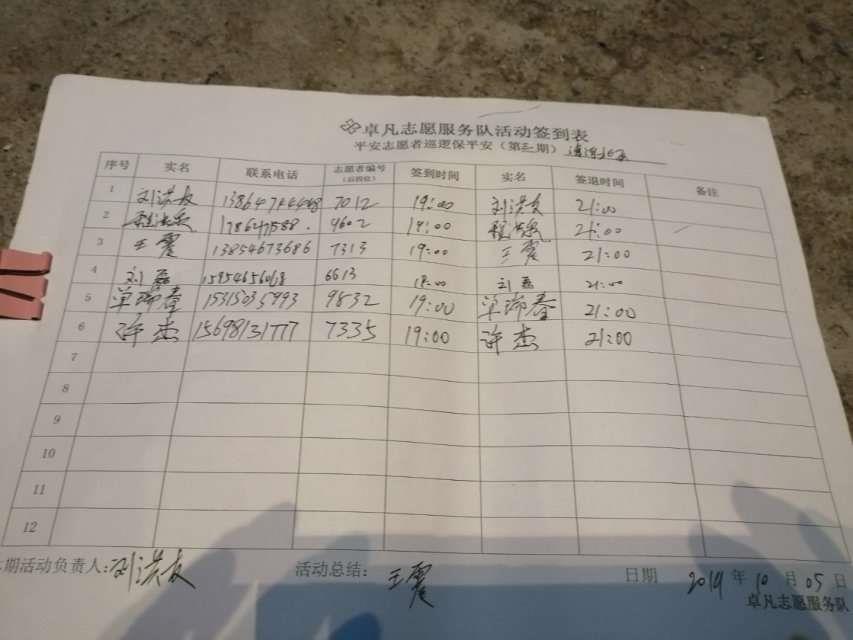 卓凡志愿服务队活动签到表
平安志愿者巡逻保平安（第三期）
序号 实名 联系电话 志愿者编号（后四位） 签到时间 实名 签退时间 备注
1 刘洪友 7012 19:00 刘洪友 21:00
2 9602 19:00 21:00
3 王震 13854673686 7313 19:00 王震 21:00
4 刘磊 6613 19:00 刘磊 21:00
5 单瑞春 15315035993 9832 19:00 单瑞春 21:00
6 许杰 15698131777 7335 19:00 许杰 21:00
7
8
9
10
11
12
期活动负责人:刘洪友 活动总结：王震 日期 2019年10月05日
卓凡志愿服务队